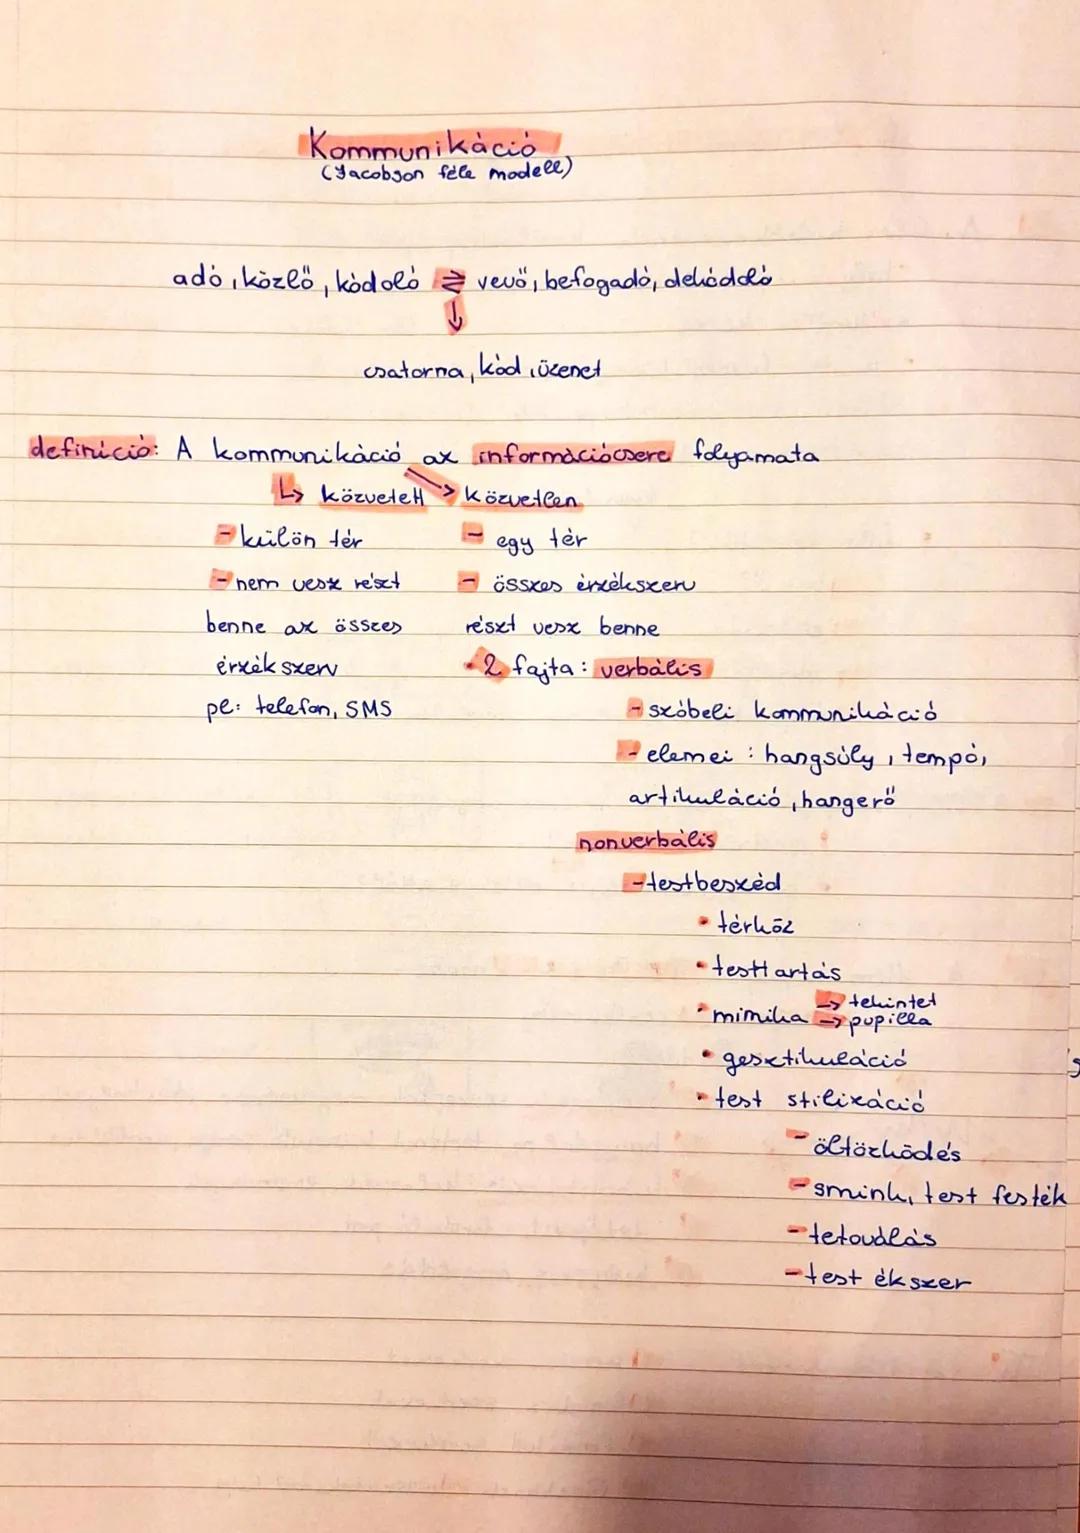 Kommunikáció
(Jacobson féle modell)
adó, közlő, kódoló ⇄ vevő, befogadó, dekódoló
↓
csatorna, kód, üzenet
definíció: A kommunikáció az információcsere folyamata
↳ közvetett → közvetlen
- külön tér - egy tér
- nem vesz részt - összes érzékszerv
benne az összes részt vesz benne
érzékszerv • 2 fajta: verbális
pl: telefon, SMS - szóbeli kommunikáció
- elemei: hangsúly, tempó,
artikuláció, hangerő
nonverbális
- testbeszéd
• térköz
• testtartás
• mimika → tekintet
→ pupilla
• gesztikuláció
• test stilizáció
- öltözködés
- smink, test festék
- tetoválás
- test ékszer